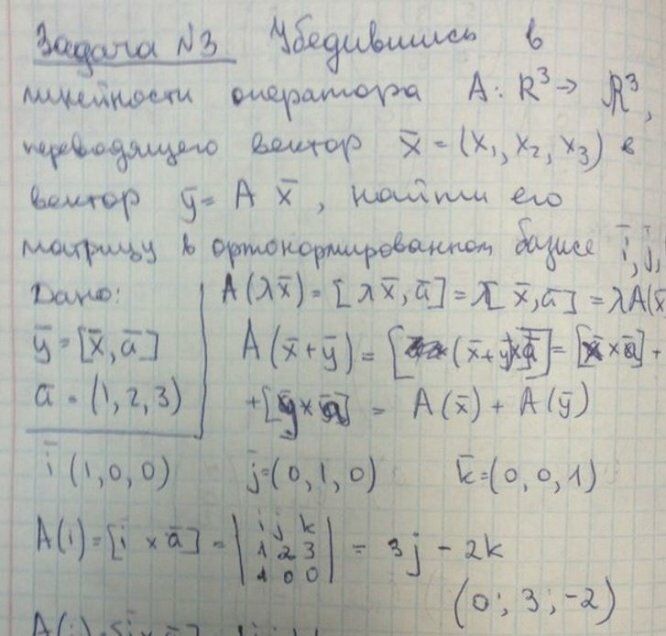 Задача N3 Убедившись в
линейности оператора A: R³ → R³,
переводящего вектор x̄ = (x₁, x₂, x₃) в
вектор ȳ = A x̄, найти его
матрицу в ортонормированном базисе ī, j̄,
Дано:
ȳ = [x̄, ā]
ā = (1, 2, 3)
A(λx̄) = [λx̄, ā] = λ[x̄, ā] = λA(x̄
A(x̄+ȳ) = [(x̄+ȳ)×ā] = [x̄×ā] +
+[ȳ×ā] = A(x̄) + A(ȳ)
ī (1, 0, 0) j̄=(0, 1, 0) k̄=(0, 0, 1)
A(i) = [ī × ā] = | i j k | = 3j - 2k
1 2 3
1 0 0
(0; 3; -2)